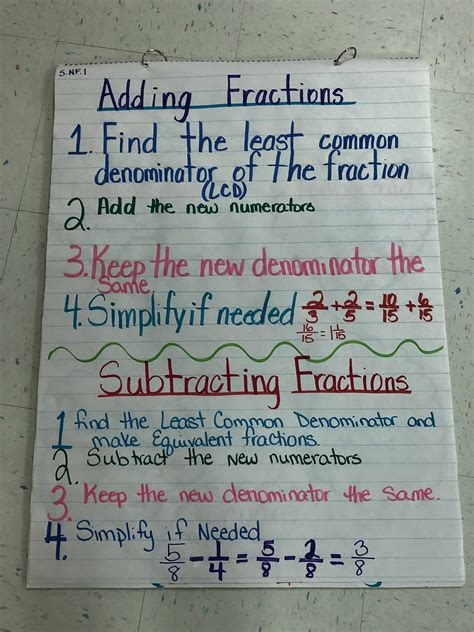 5.NF.1
Adding Fractions
1. Find the least common
denominator of the fraction
(LCD)
2. Add the new numerators
3. Keep the new denominator the
same
4. Simplify if needed 2/3 + 2/5 = 10/15 + 6/15
16/15 = 1 1/15
Subtracting Fractions
1 find the Least Common Denominator and
make Equivalent fractions.
2. Subtract the new numerators
3. Keep the new denominator the same.
4. Simplify if Needed
5/8 - 1/4 = 5/8 - 2/8 = 3/8